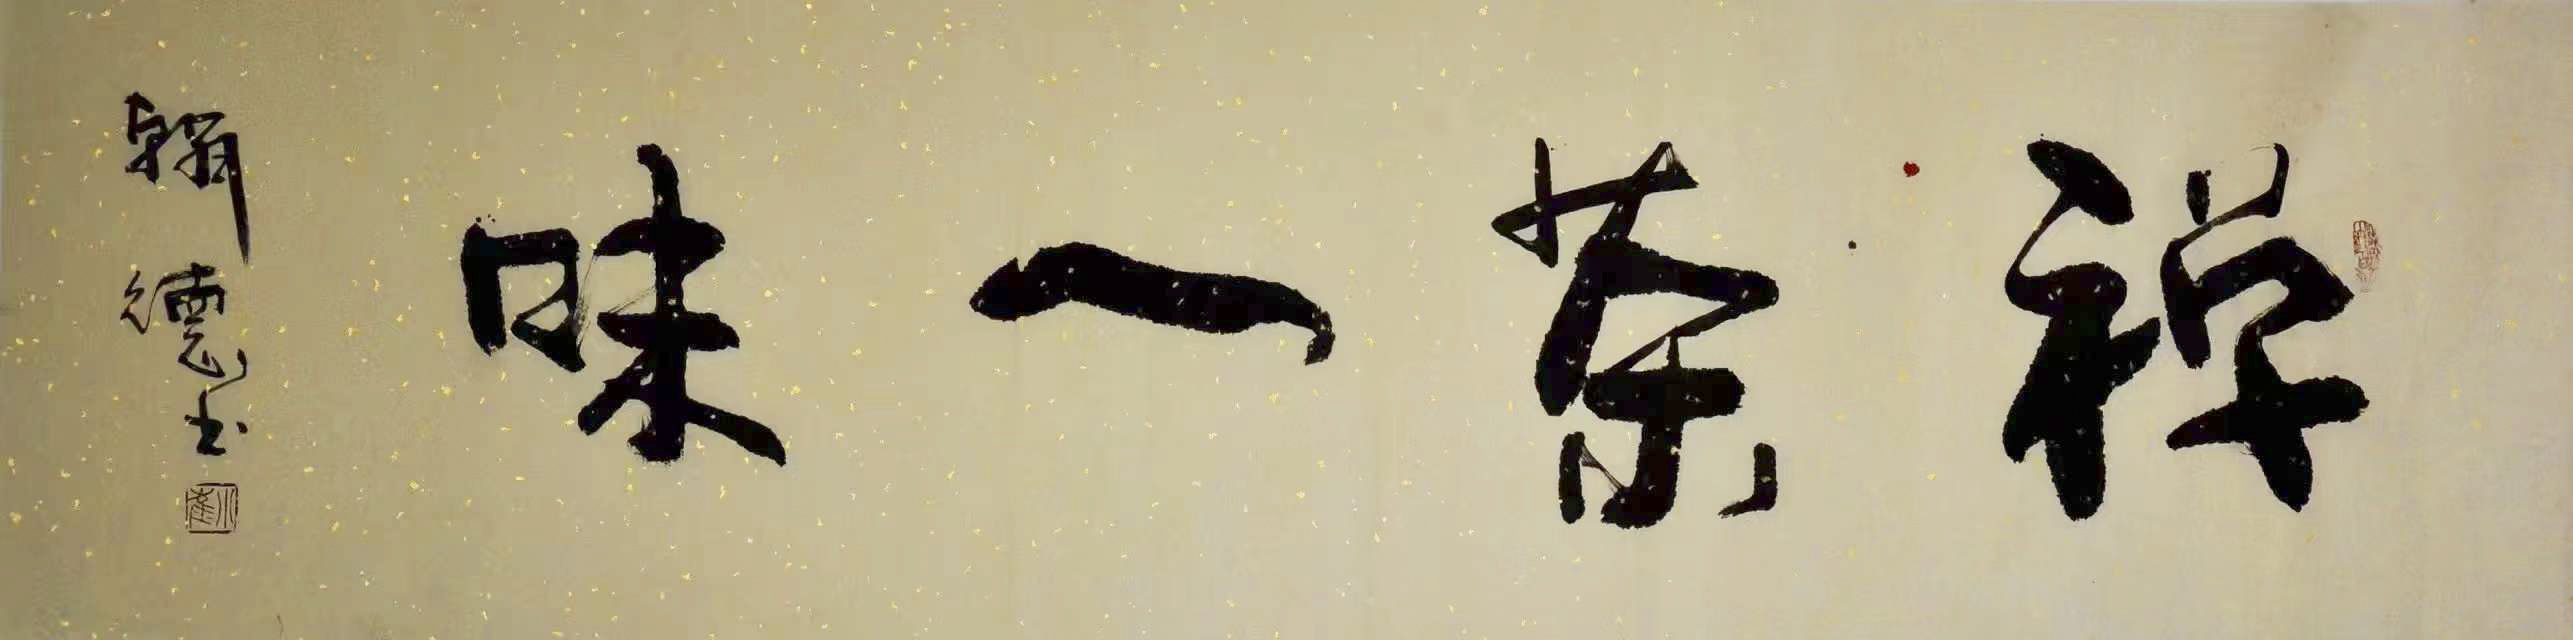 禅茶一味
翰德书